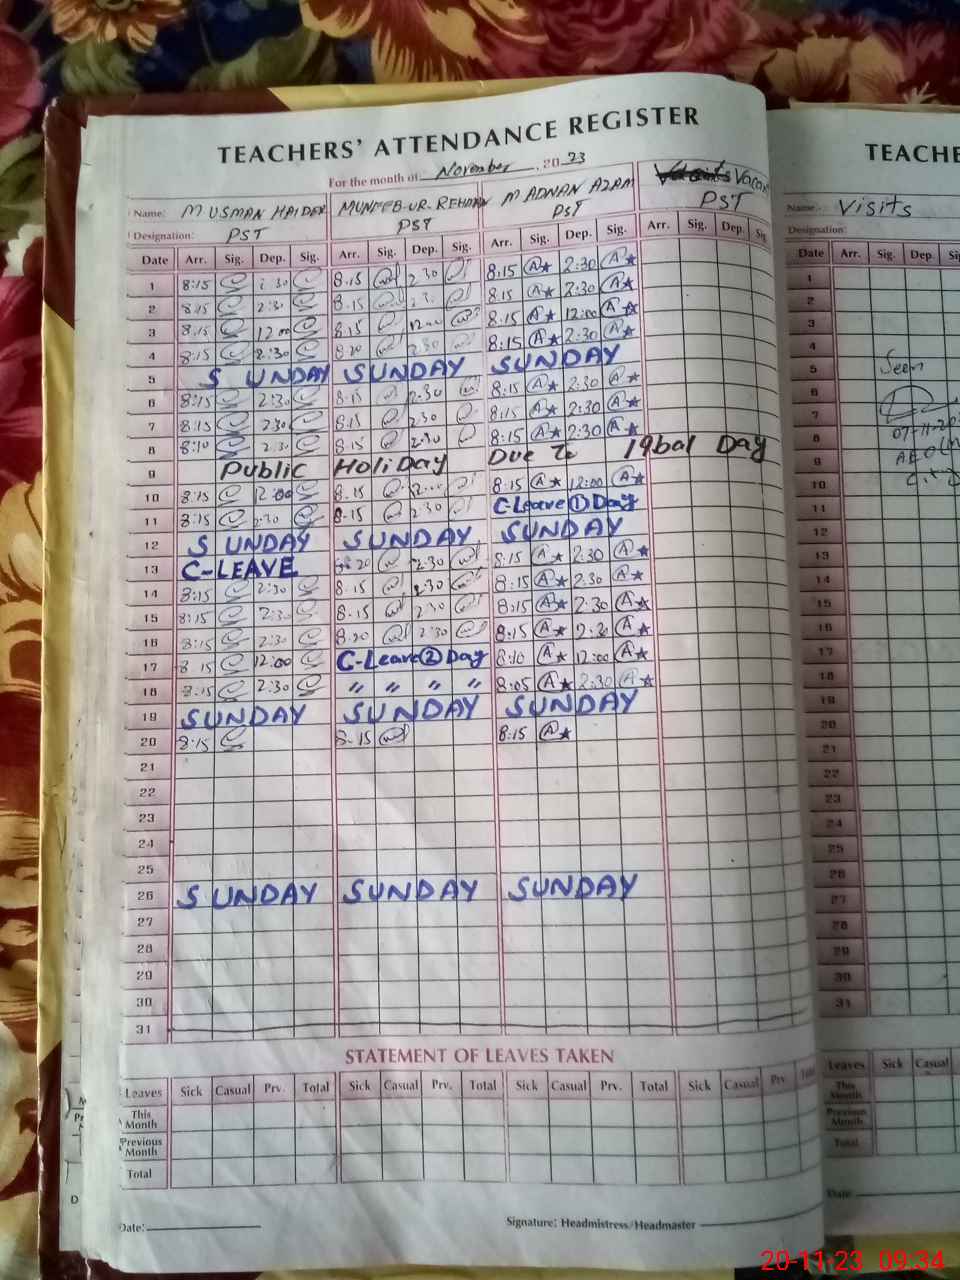 TEACHERS' ATTENDANCE REGISTER
For the month of November, 20 23
Name: M USMAN HAIDER MUNEEB-UR-REHMAN M ADNAN AZAM
Designation: PST PST PST PST
Date Arr. Sig. Dep. Sig. Arr. Sig. Dep. Sig. Arr. Sig. Dep. Sig. Arr. Sig. Dep. Sig.
1 8:15 8:15 2:30 8:15 2:30
2 8:15 2:30 8:15 8:15 2:30
3 8:15 12:00 8:15 12:00 8:15 12:00
4 8:15 2:30 8:20 2:30 8:15 2:30
5 SUNDAY SUNDAY SUNDAY
6 8:15 2:30 8:15 2:30 8:15 2:30
7 8:15 2:30 8:15 2:30 8:15 2:30
8 8:10 2:30 8:15 2:30 8:15 2:30
9 Public Holiday Due To Iqbal Day
10 8:15 12:00 8:15 8:15 12:00
11 8:15 2:30 8:15 2:30 C-Leave 1 Day
12 SUNDAY SUNDAY SUNDAY
13 C-LEAVE 8:20 2:30 8:15 2:30
14 8:15 2:30 8:15 2:30 8:15 2:30
15 8:15 2:30 8:15 2:30 8:15 2:30
16 8:15 2:30 8:20 2:30 8:15 2:30
17 8:15 12:00 C-Leave 2 Day 8:10 12:00
18 8:15 2:30 " " " " 8:05 2:30
19 SUNDAY SUNDAY SUNDAY
20 8:15 8:15 8:15
21
22
23
24
25
26 SUNDAY SUNDAY SUNDAY
27
28
29
30
31
STATEMENT OF LEAVES TAKEN
Leaves Sick Casual Prv. Total Sick Casual Prv. Total Sick Casual Prv. Total Sick Casual Prv.
This Month
Previous Month
Total
Date: Signature: Headmistress/Headmaster
Name:- Visits
Designation:
Date Arr. Sig. Dep.
1
2
3
4
5 Seen
6
7
8
9
10
11
12
13
14
15
16
17
18
19
20
21
22
23
24
25
26
27
28
29
30
31
Leaves Sick Casual
This Month
Previous Month
Total
Date
20-11-23 09:34